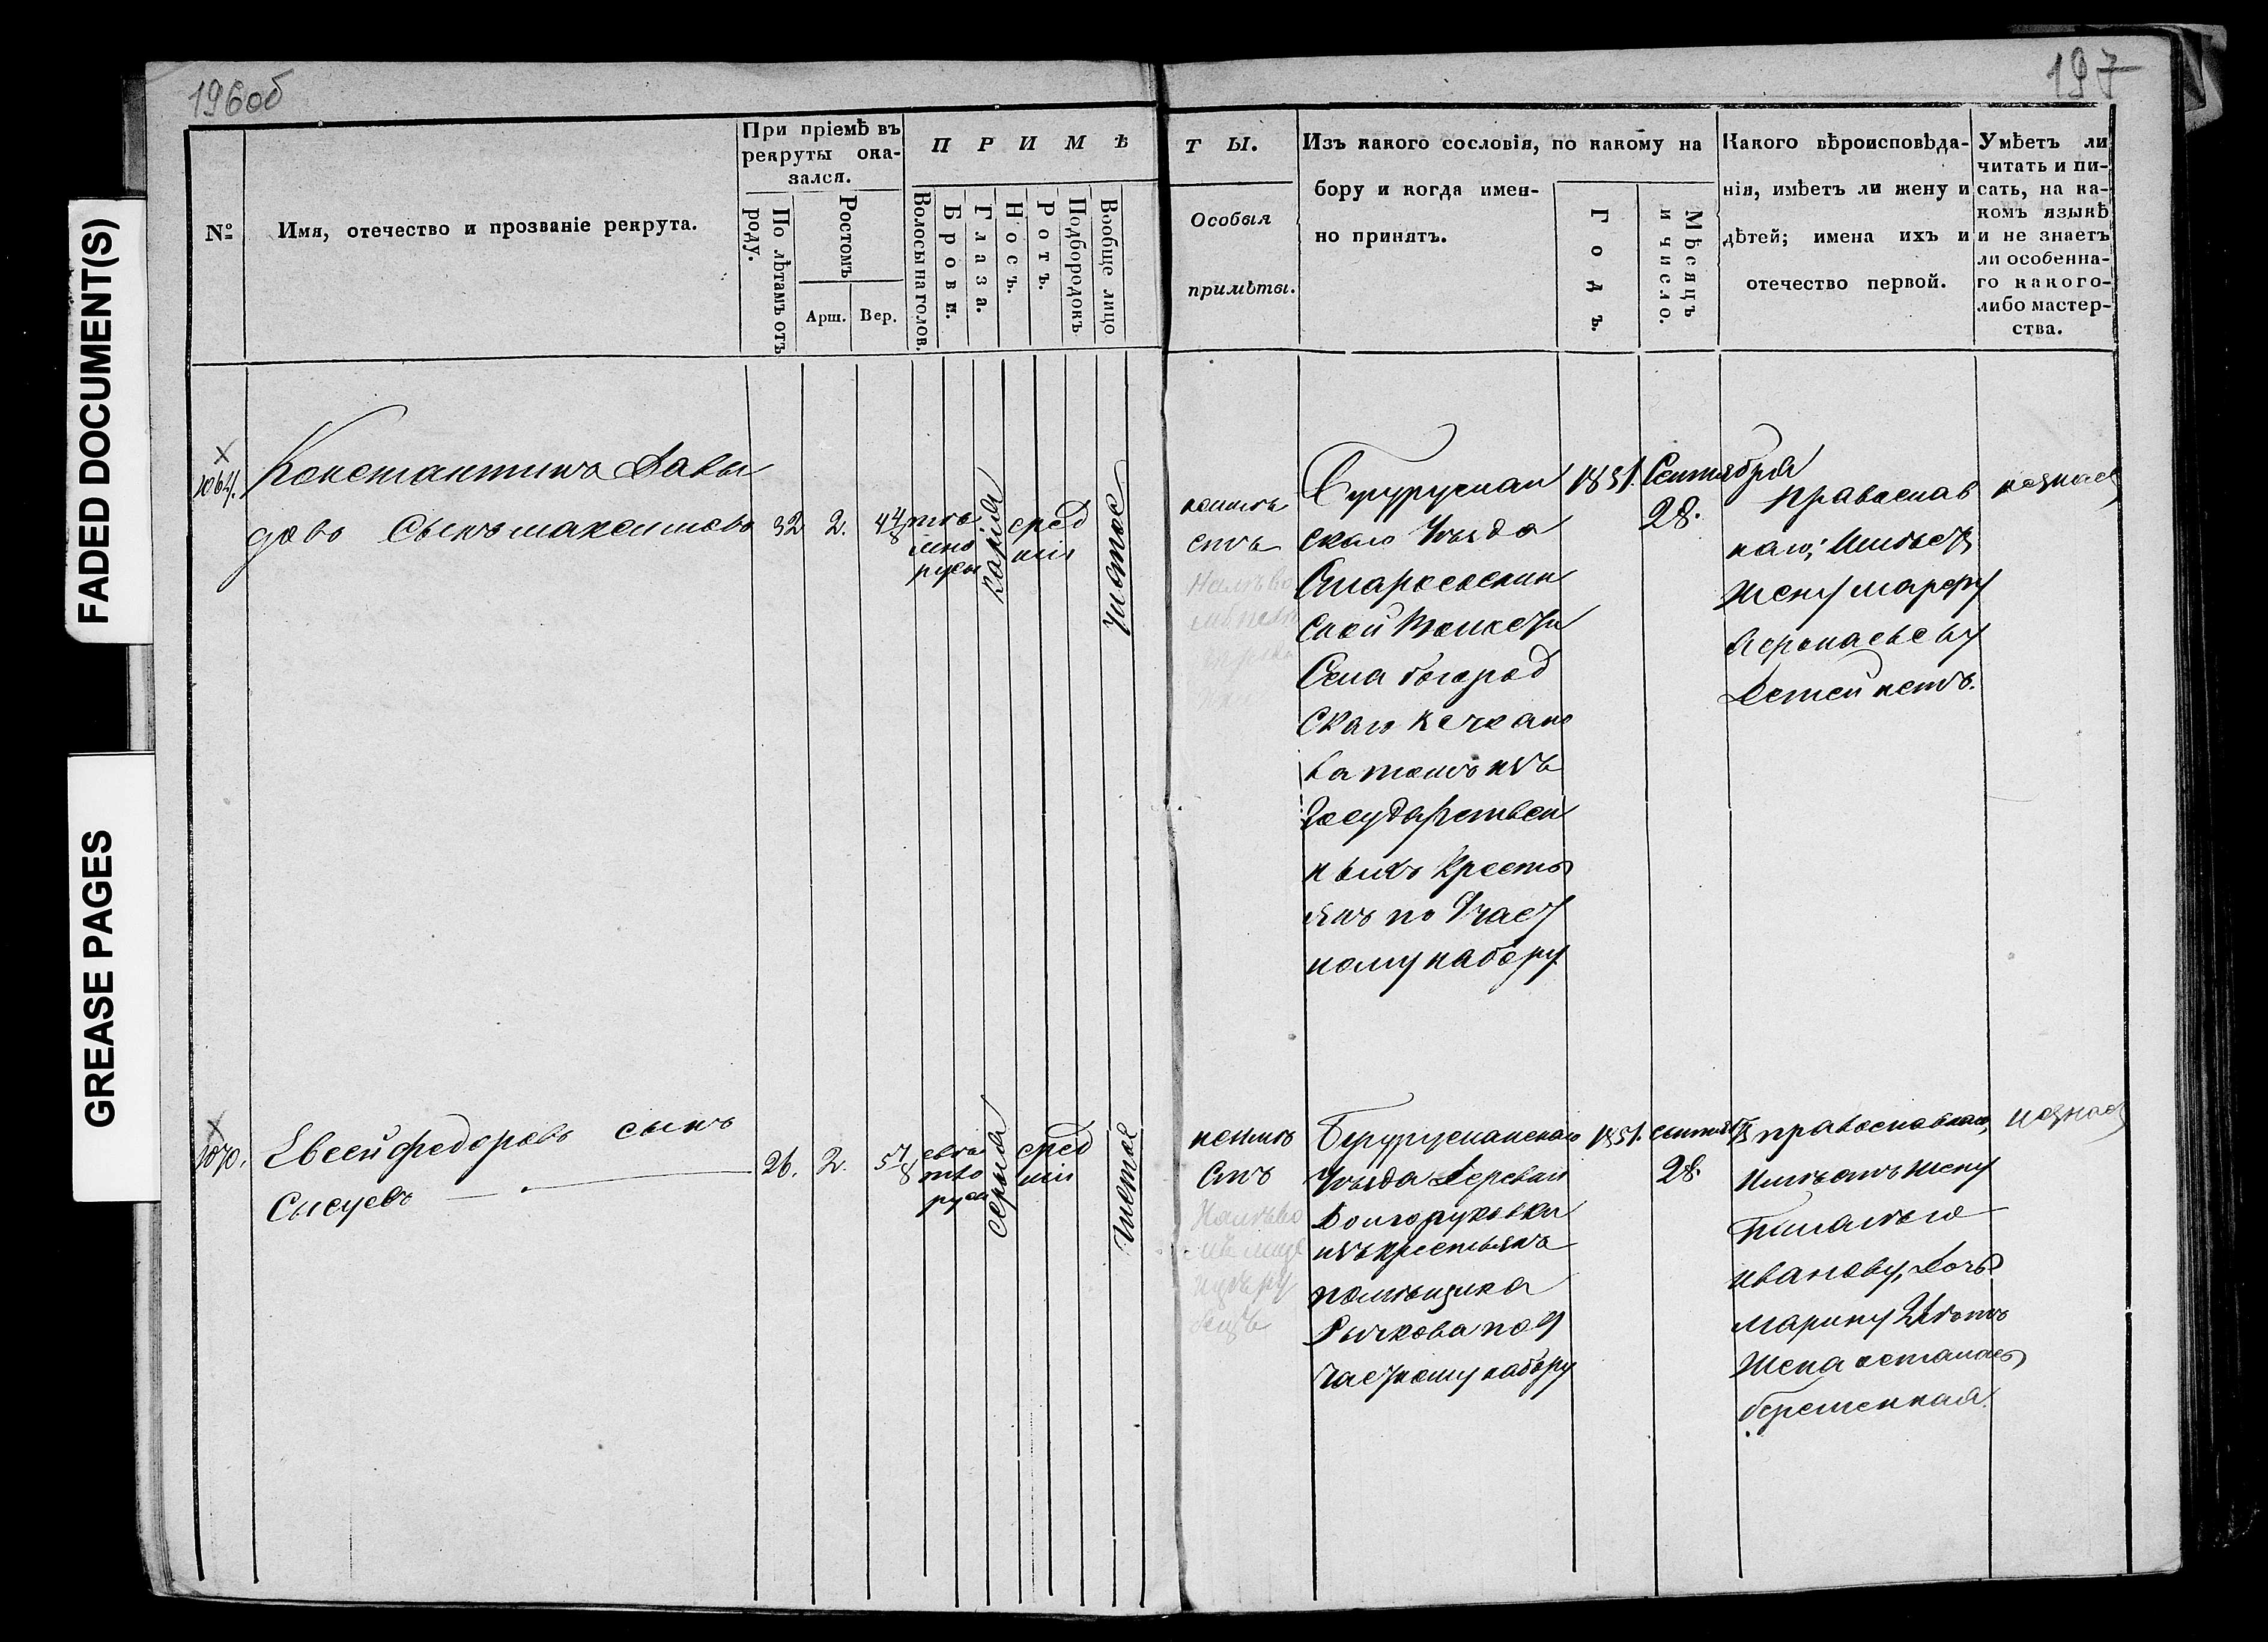 FADED DOCUMENT(S)
GREASE PAGES
196об
197
№
Имя, отечество и прозваніе рекрута.
При пріемѣ въ
рекруты ока-
зался.
По лѣтамъ отъ
роду.
Ростомъ
Арш. Вер.
ПРИМѢ
Волосы на голов.
Брови.
Глаза.
Носъ.
Ротъ.
Подбородокъ
Вообще лицо
ТЫ.
Особыя
примѣты.
Изъ какого сословія, по какому на
бору и когда имен-
но принятъ.
Годъ.
Мѣсяцъ
и число.
Какого вѣроисповѣда-
нія, имѣетъ ли жену и
дѣтей; имена ихъ и
отечество первой.
Умѣетъ ли
читать и пи-
сать, на ка-
комъ языкѣ
и не знаетъ
ли особенна-
го какого-
либо мастер-
ства.
Константинъ Давы
довъ сынъ максимовъ
32 2. 4 4/8
тем
но
русы
карія
сред
нія
чистое
неимѣ
етъ
Бугуруслан
скаго Уѣзда
ской Волости
Села богород
скаго
ва тожъ изъ
Государствен
ныхъ Кресть
янъ по Част
ному набору
1851. Сентября
28.
Православ
наго; Имѣетъ
жену марфу
Детей нетъ.
незнаетъ
1070.
Евсей федоровъ сынъ
Сысуевъ
26. 2. 5 1/8
свѣт
ло
русы
серыя
сред
нія
чистое
неимѣ
етъ
Бугурусланскаго
Уѣзда Деревни
Долгоруковки
изъ крестьянъ
помѣщика
Рычкова по Ч
частному набору
1851. сентяб
28.
православнаго,
имѣетъ жену
иванову, дочь
марину
Жена осталась
беременная.
незнаетъ